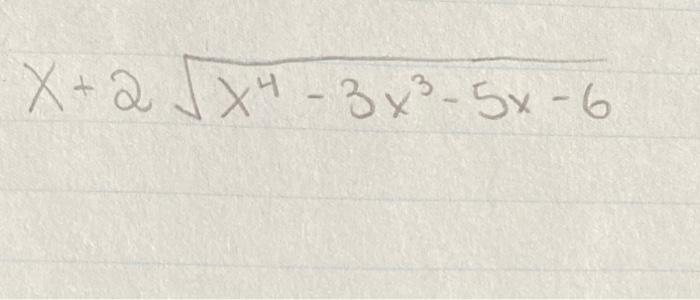 x + 2 √(x⁴ - 3x³ - 5x - 6)